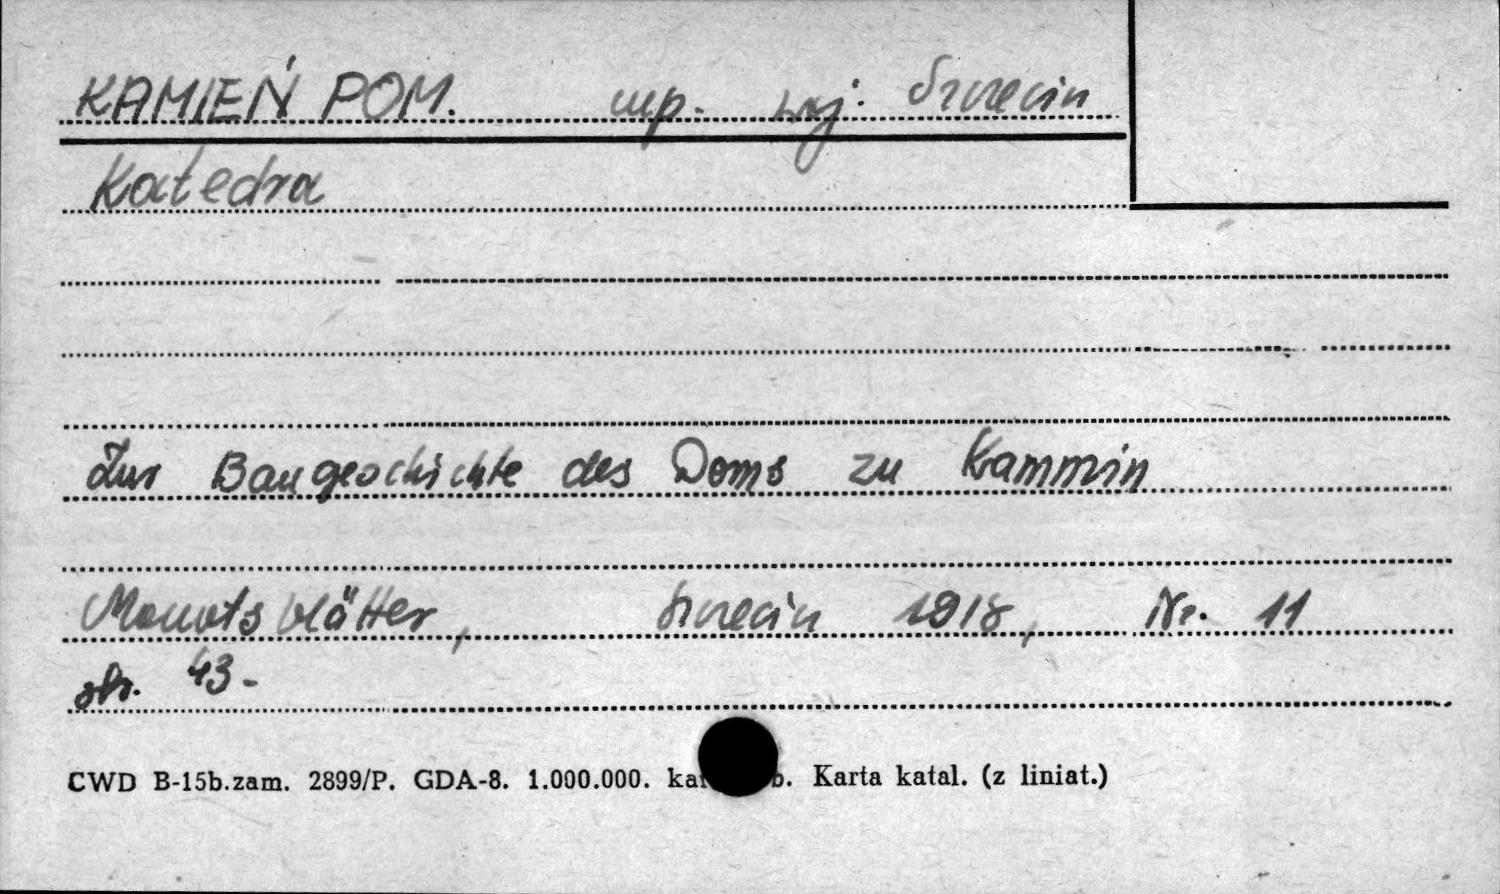 KAMIEŃ POM. mp. woj. Szczecin
Katedra
Zur Baugeschichte des Doms zu Kammin
Monatsblätter, Szczecin 1918, Nr. 11
str. 43-
CWD B-15b.zam. 2899/P. GDA-8. 1.000.000. b. Karta katal. (z liniat.)